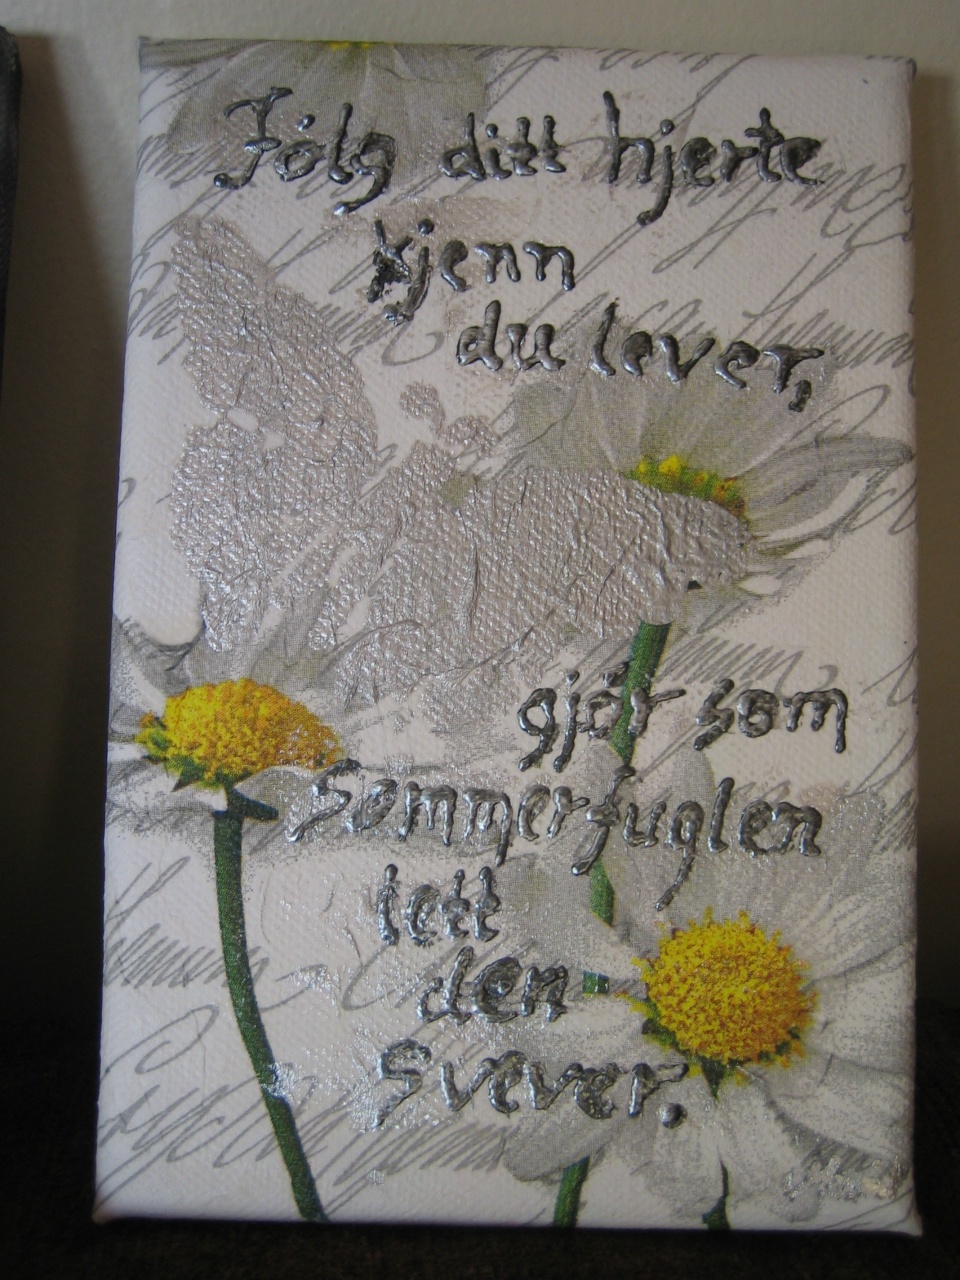 Følg ditt hjerte
kjenn
du lever,
gjør som
Sommerfuglen
lett
den
Svever.